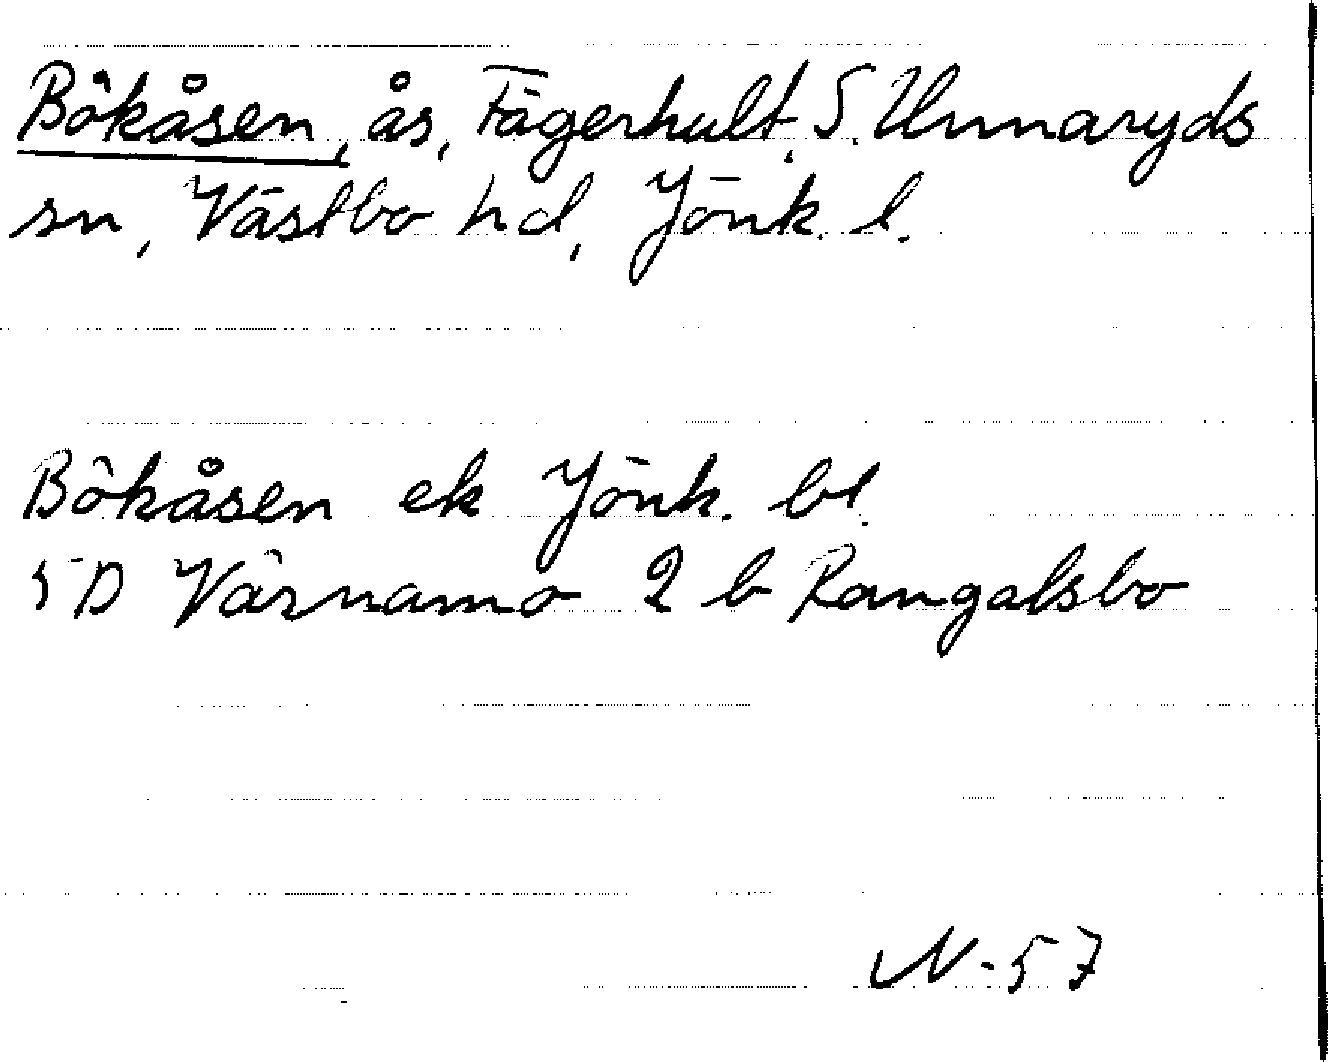 Bökåsen, ås, Fägerhult, S. Unnaryds
sn, Västbo hd, Jönk. l.
Bökåsen ek Jönk. bl.
5D Värnamo 2 b Rangalsbo
N-57